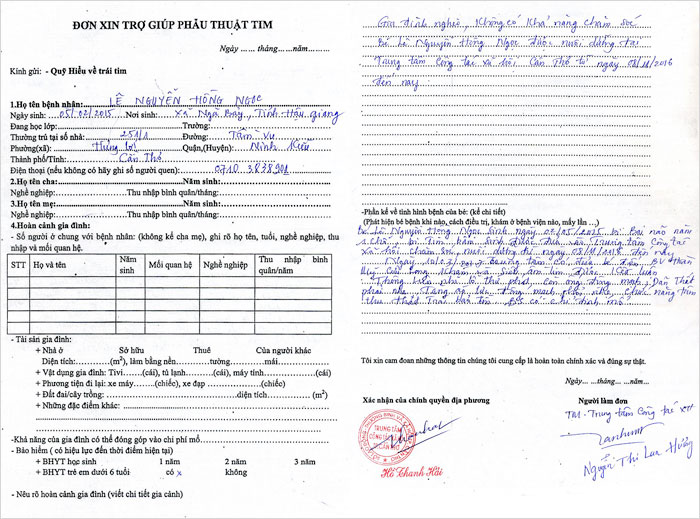 ĐƠN XIN TRỢ GIÚP PHẪU THUẬT TIM
Ngày ...... tháng...năm......
Kính gửi: - Quỹ Hiểu về trái tim
1.Họ tên bệnh nhân: LÊ NGUYỄN HỒNG NGỌC
Ngày sinh: 05/02/2015 Nơi sinh: Xã Ngã Bảy, Tỉnh Hậu Giang
Đang học lớp: Trường:
Thường trú tại số nhà: 251/1 Đường: Tầm Vu
Phường(xã): Hưng Lợi Quận,(Huyện): Ninh Kiều
Thành phố/Tỉnh: Cần Thơ
Điện thoại (nếu không có hãy ghi số người quen): 0710 3838901
2.Họ tên cha: Năm sinh:
Nghề nghiệp: Thu nhập bình quân/tháng:
3.Họ tên mẹ: Năm sinh:
Nghề nghiệp: Thu nhập bình quân/tháng:
4.Hoàn cảnh gia đình:
- Số người ở chung với bệnh nhân: (không kể cha mẹ), ghi rõ họ tên, tuổi, nghề nghiệp, thu
nhập và mối quan hệ.
STT Họ và tên Năm sinh Mối quan hệ Nghề nghiệp Thu nhập bình quân/năm
- Tài sản gia đình:
+ Nhà ở Sở hữu Thuê Của người khác
Diện tích:......(m²), làm bằng nền......tường......mái......
+ Vật dụng gia đình: Tivi......(cái), tủ lạnh......(cái), máy tính......(cái)
+ Phương tiện đi lại: xe máy......(chiếc), xe đạp ......(chiếc)
+ Đất đai/cây trồng:......diện tích ...... (m²)
+ Những đặc điểm khác: ......
-Khả năng của gia đình có thể đóng góp vào chi phí mổ......
- Bảo hiểm ( có hiệu lực đến thời điểm hiện tại)
+ BHYT học sinh 1 năm 2 năm 3 năm
+ BHYT trẻ em dưới 6 tuổi có x không
- Nêu rõ hoàn cảnh gia đình (viết chi tiết gia cảnh)
Gia đình nghèo, không có khả năng chăm sóc
Bé Lê Nguyễn Hồng Ngọc được nuôi dưỡng tại
Trung tâm Công tác xã hội Cần Thơ từ ngày 08/11/2016
đến nay
-Phần kể về tình hình bệnh của bé: (kể chi tiết)
(Phát hiện bé bệnh khi nào, cách điều trị, khám ở bệnh viện nào, mấy lần ...)
Bé Lê Nguyễn Hồng Ngọc Sinh ngày 05/02/2015 bị Bại não
bị Tim bẩm sinh được đưa vào Trung tâm Công tác
xã hội chăm sóc, nuôi dưỡng từ ngày 08/11/2016 đến nay
Trung tâm có đưa bé đến BV Hoàn
Mỹ Cửu Long khám và siêu âm tim được kết luận
Thông liên nhĩ lỗ thứ phát, Còn ống động mạch, Dãn thất
phải nhẹ, Tăng áp lực động mạch phổi nhẹ, chức năng tâm
thu thất Trái bảo tồn, BS có chỉ định mổ.
Tôi xin cam đoan những thông tin chúng tôi cung cấp là hoàn toàn chính xác và đúng sự thật.
Ngày... ...tháng... ...năm...
Xác nhận của chính quyền địa phương Người làm đơn
TM. Trung tâm Công tác XH
TRUNG TÂM
CÔNG TÁC XÃ HỘI
Hồ Chanh Hải
Nguyễn Thị Lan Hương